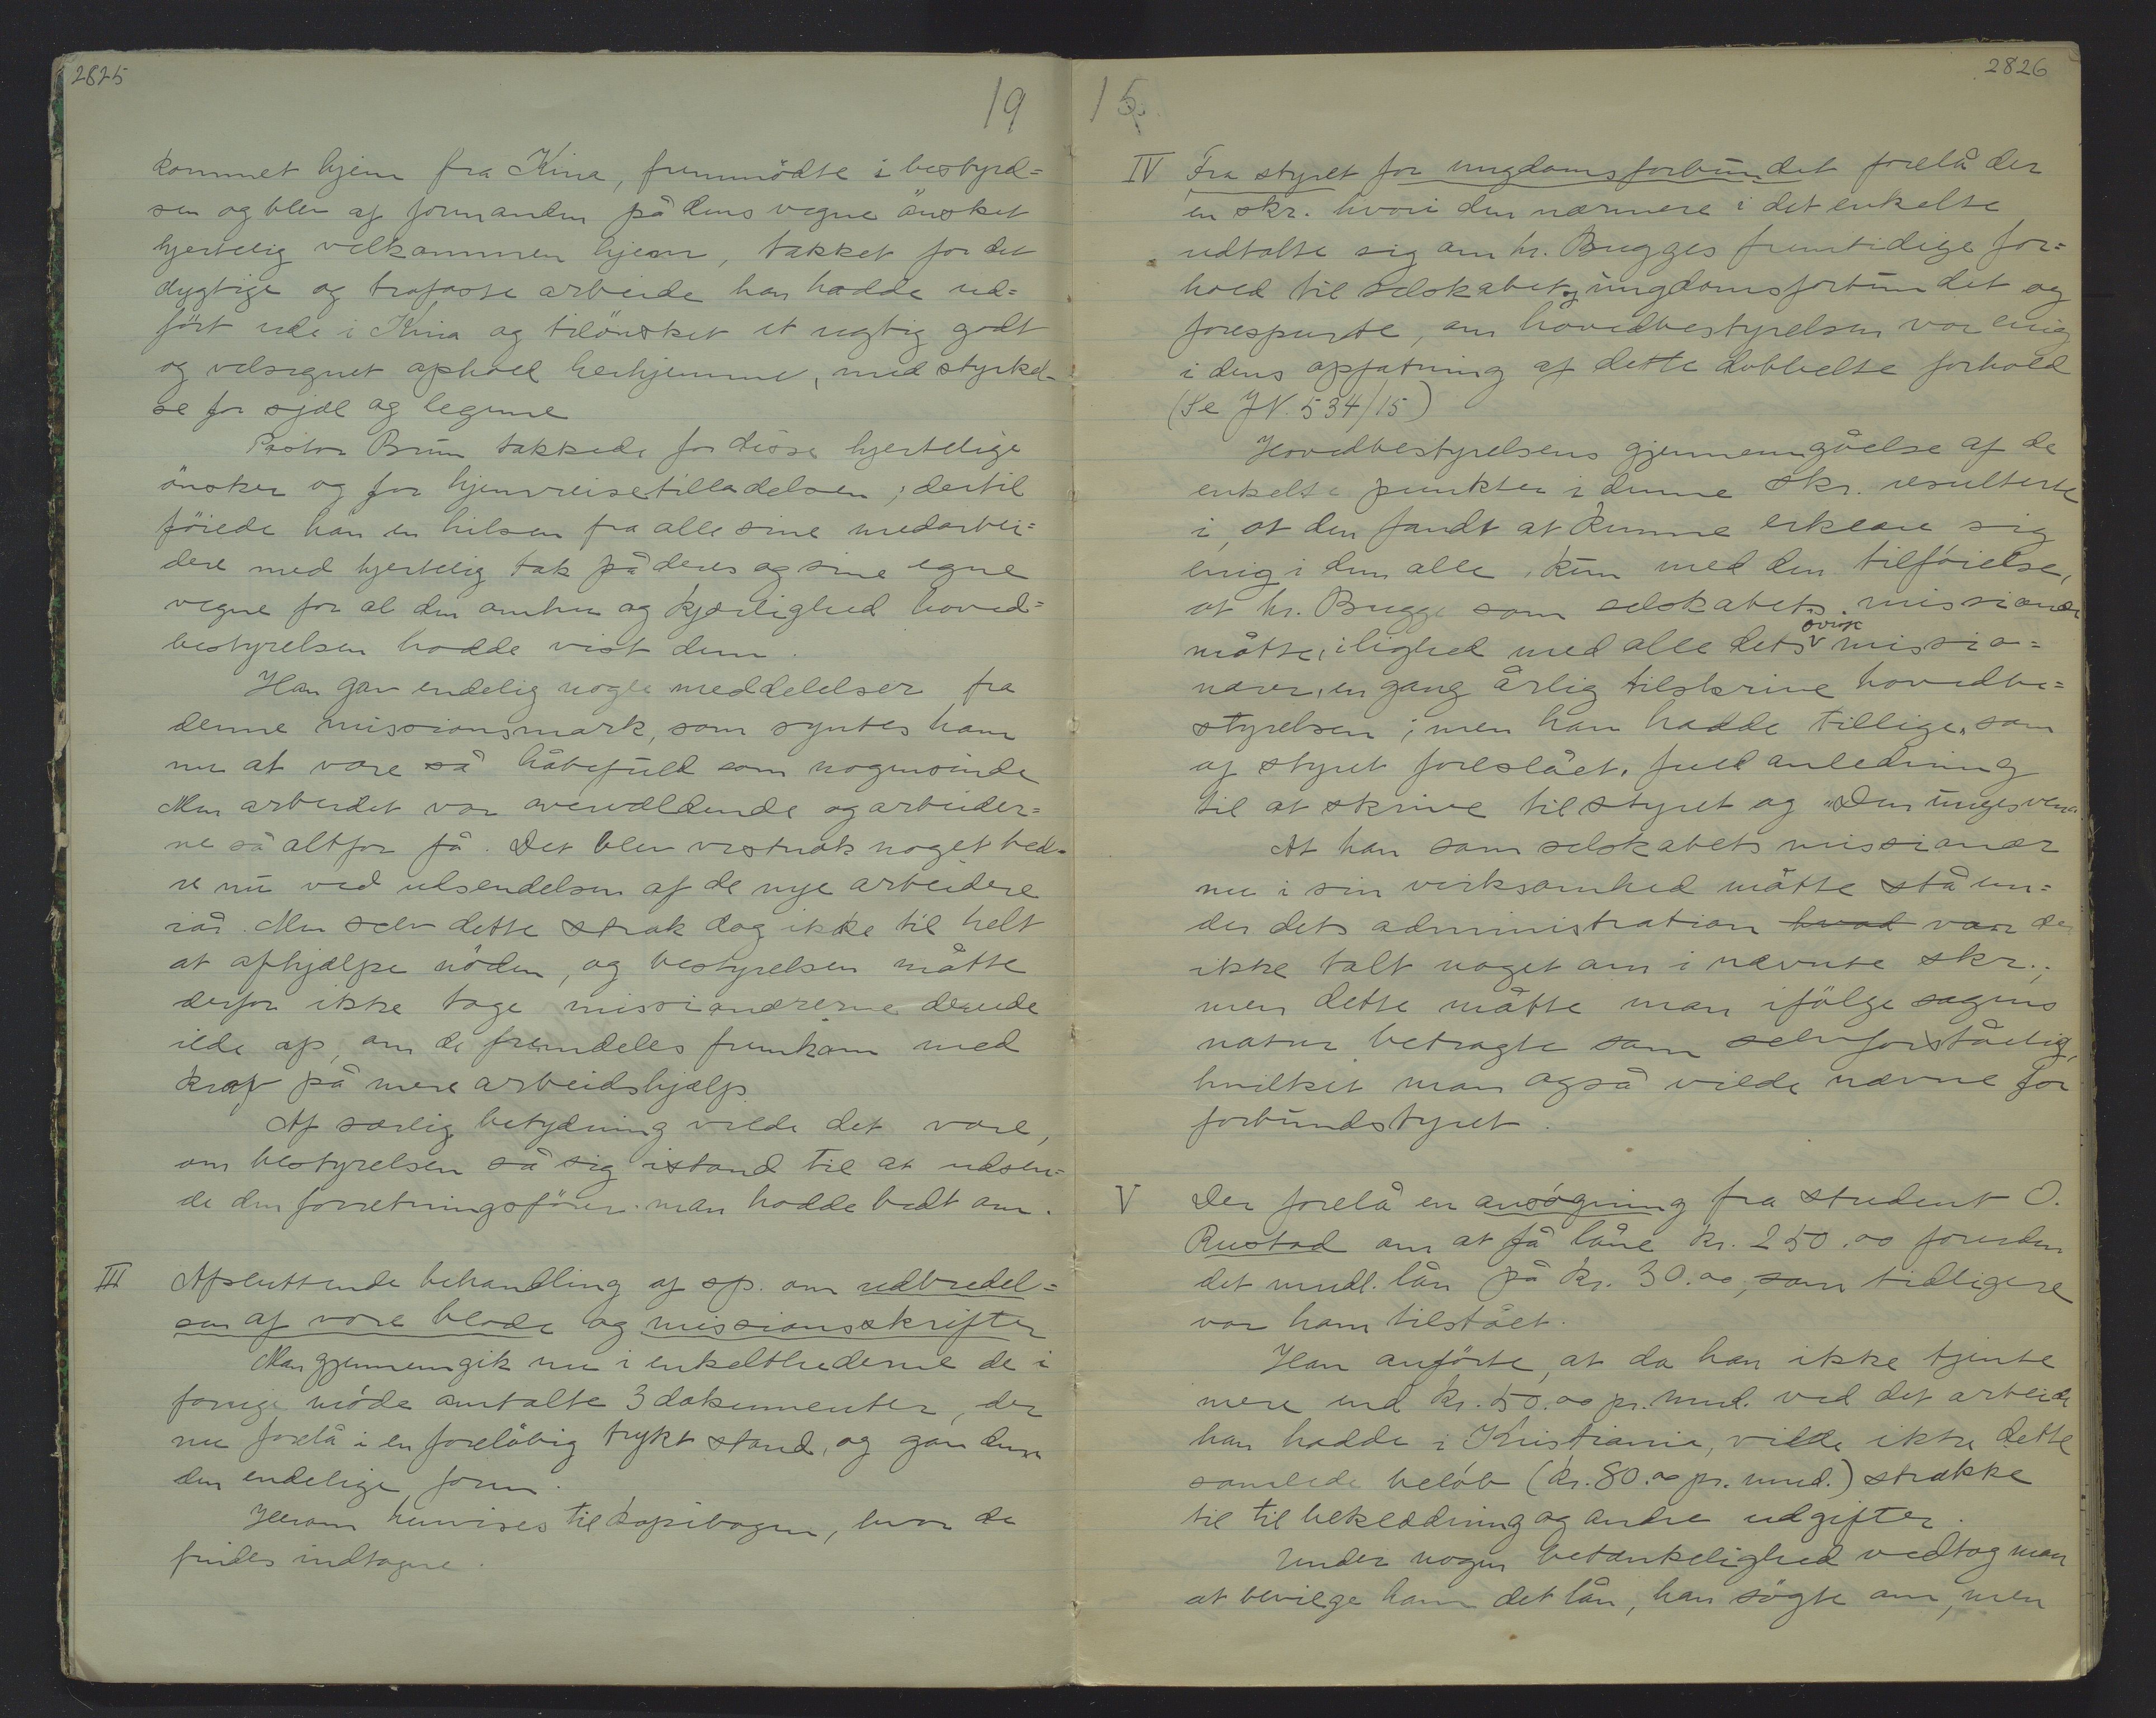 2825
19
kommet hjem fra Kina, fremmödte i bestyrel=
sen og blev af formanden på dens vegne önsket
hjertelig velkommen hjem, takket for det
dygtige og trofaste arbeide han hadde ud=
fört ude i Kina og tilönsket et rigtig godt
og velsignet ophold herhjemme, med styrkel-
se for sjæl og legeme
Pastor Brun takkede for disse hjertelige
önsker og for hjemreisetilladelsen; dertil
föiede han en hilsen fra alle sine medarbei=
dere med hjertelig tak på deres og sine egne
vegne for al den omhu og kjærlighed hoved=
bestyrelsen hadde vist dem.
Han gav endelig nogle meddelelser fra
denne missionsmark, som syntes ham
nu at være så håbefuld som nogensinde
Men arbeidet var overvældende og arbeider=
ne så altfor få. Det blev vistnok noget bed-
re nu ved udsendelsen af de nye arbeidere
iår. Men selv dette strak dog ikke til helt
at afhjælpe nöden, og bestyrelsen måtte
derfor ikke tage missionærerne derude
ilde op, om de fremdeles fremkom med
krav på mere arbeidshjælp.
Af særlig betydning vilde det være,
om bestyrelsen så sig istand til at udsen=
de den forretningsförer man hadde bedt om.
III Afsluttende behandling af sp. om udbredel=
sen af vore blade og missionsskrifter
Man gjennemgik nu i enkelthederne de i
forrige möde omtalte 3 dokumenter, der
nu forelå i en forelöbig trykt stand, og gav dem
den endelige form.
Herom henvises til kopibogen, hvor de
findes indtagne.
2826
15.
IV Fra styret for ungdomsforbundet forelå der
en skr. hvori den nærmere i det enkelte
udtalte sig om hr. Bugges fremtidige for=
hold til selskabet og ungdomsforbundet og
forespurte, om hovedbestyrelsen var enig
i dens opfatning af dette dobbelte forhold
(Se JN. 534/15)
Hovedbestyrelsens gjennemgåelse af de
enkelte punkter i denne skr. resulterte
i, at den fandt at kunne erklære sig
enig i dem alle, kun med den tilföielse,
at hr. Bugge som selskabets missionær
måtte, ilighed med alle dets övrige missio=
nærer, en gang årlig tilskrive hovedbe=
styrelsen; men han hadde tillige, som
af styret foreslået, fuld anledning
til at skrive til styret og "Den unges ven"
At han som selskabets missionær
nu i sin virksomhed måtte stå un=
der dets administration hvad var der
ikke talt noget om i nævnte skr.;
men dette måtte man ifölge sagens
natur betragte som selvforståelig,
hvilket man også vilde nævne for
forbundstyret.
V Der forelå en ansögning fra student O.
Rustad om at få låne kr. 250.00 foruden
det mndl. lån på kr. 30.00, som tidligere
var ham tilstået.
Han anförte, at da han ikke tjente
mere end kr. 50.00 pr. mnd. ved det arbeide
han hadde i Kristiania, vilde ikke dette
samlede belöb (kr. 80.00 pr. mnd.) strække
til til beklædning og andre udgifter.
Under nogen betænkelighed vedtog man
at bevilge ham det lån, han sögte om, men